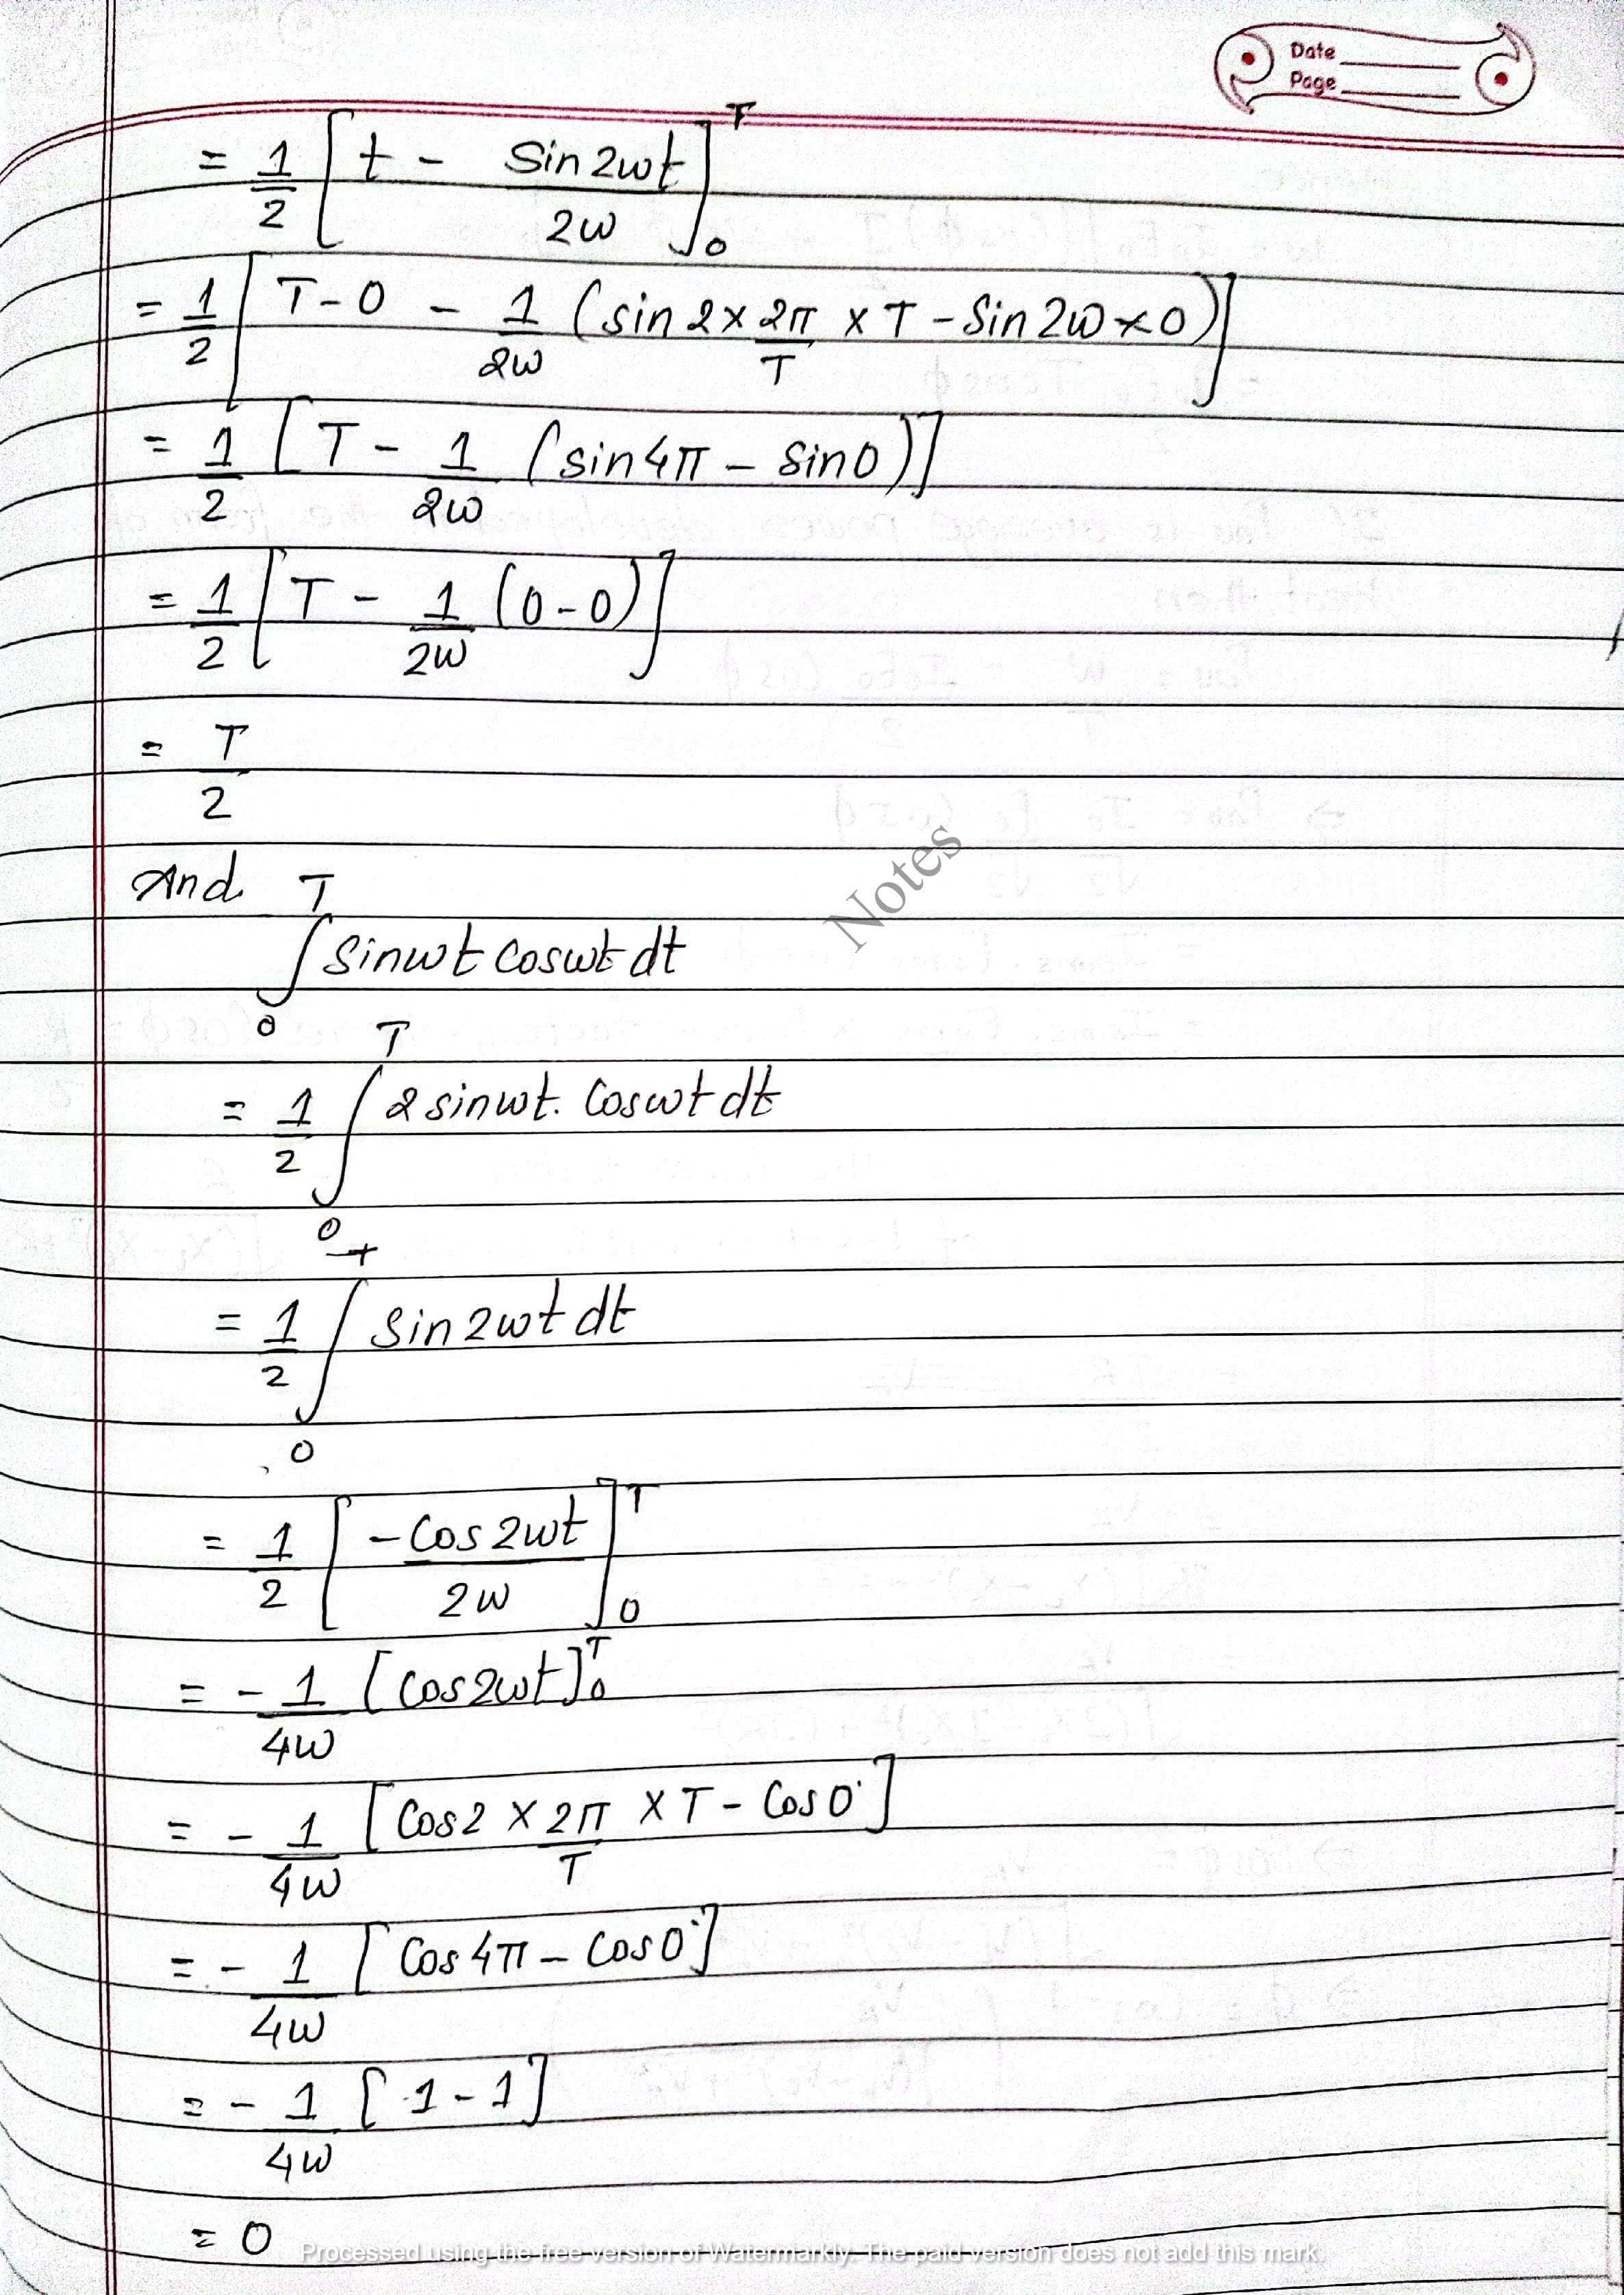 Date
Page
= 1/2 [t - Sin2ωt/2ω]₀ᵀ
= 1/2 [T-0 - 1/2ω (sin2×2π/T ×T - Sin2ω×0)]
= 1/2 [T - 1/2ω (sin4π - sin0)]
= 1/2 [T - 1/2ω (0-0)]
= T/2
And
∫₀ᵀ Sinωt cosωt dt
= 1/2 ∫₀ᵀ 2sinωt. Cosωt dt
= 1/2 ∫₀ᵀ Sin2ωt dt
= 1/2 [-Cos2ωt/2ω]₀ᵀ
= - 1/4ω [Cos2ωt]₀ᵀ
= - 1/4ω [Cos2 × 2π/T × T - Cos0°]
= - 1/4ω [Cos4π - Cos0°]
= - 1/4ω [1-1]
= 0
Notes
Processed using the free version of Watermarkly. The paid version does not add this mark.